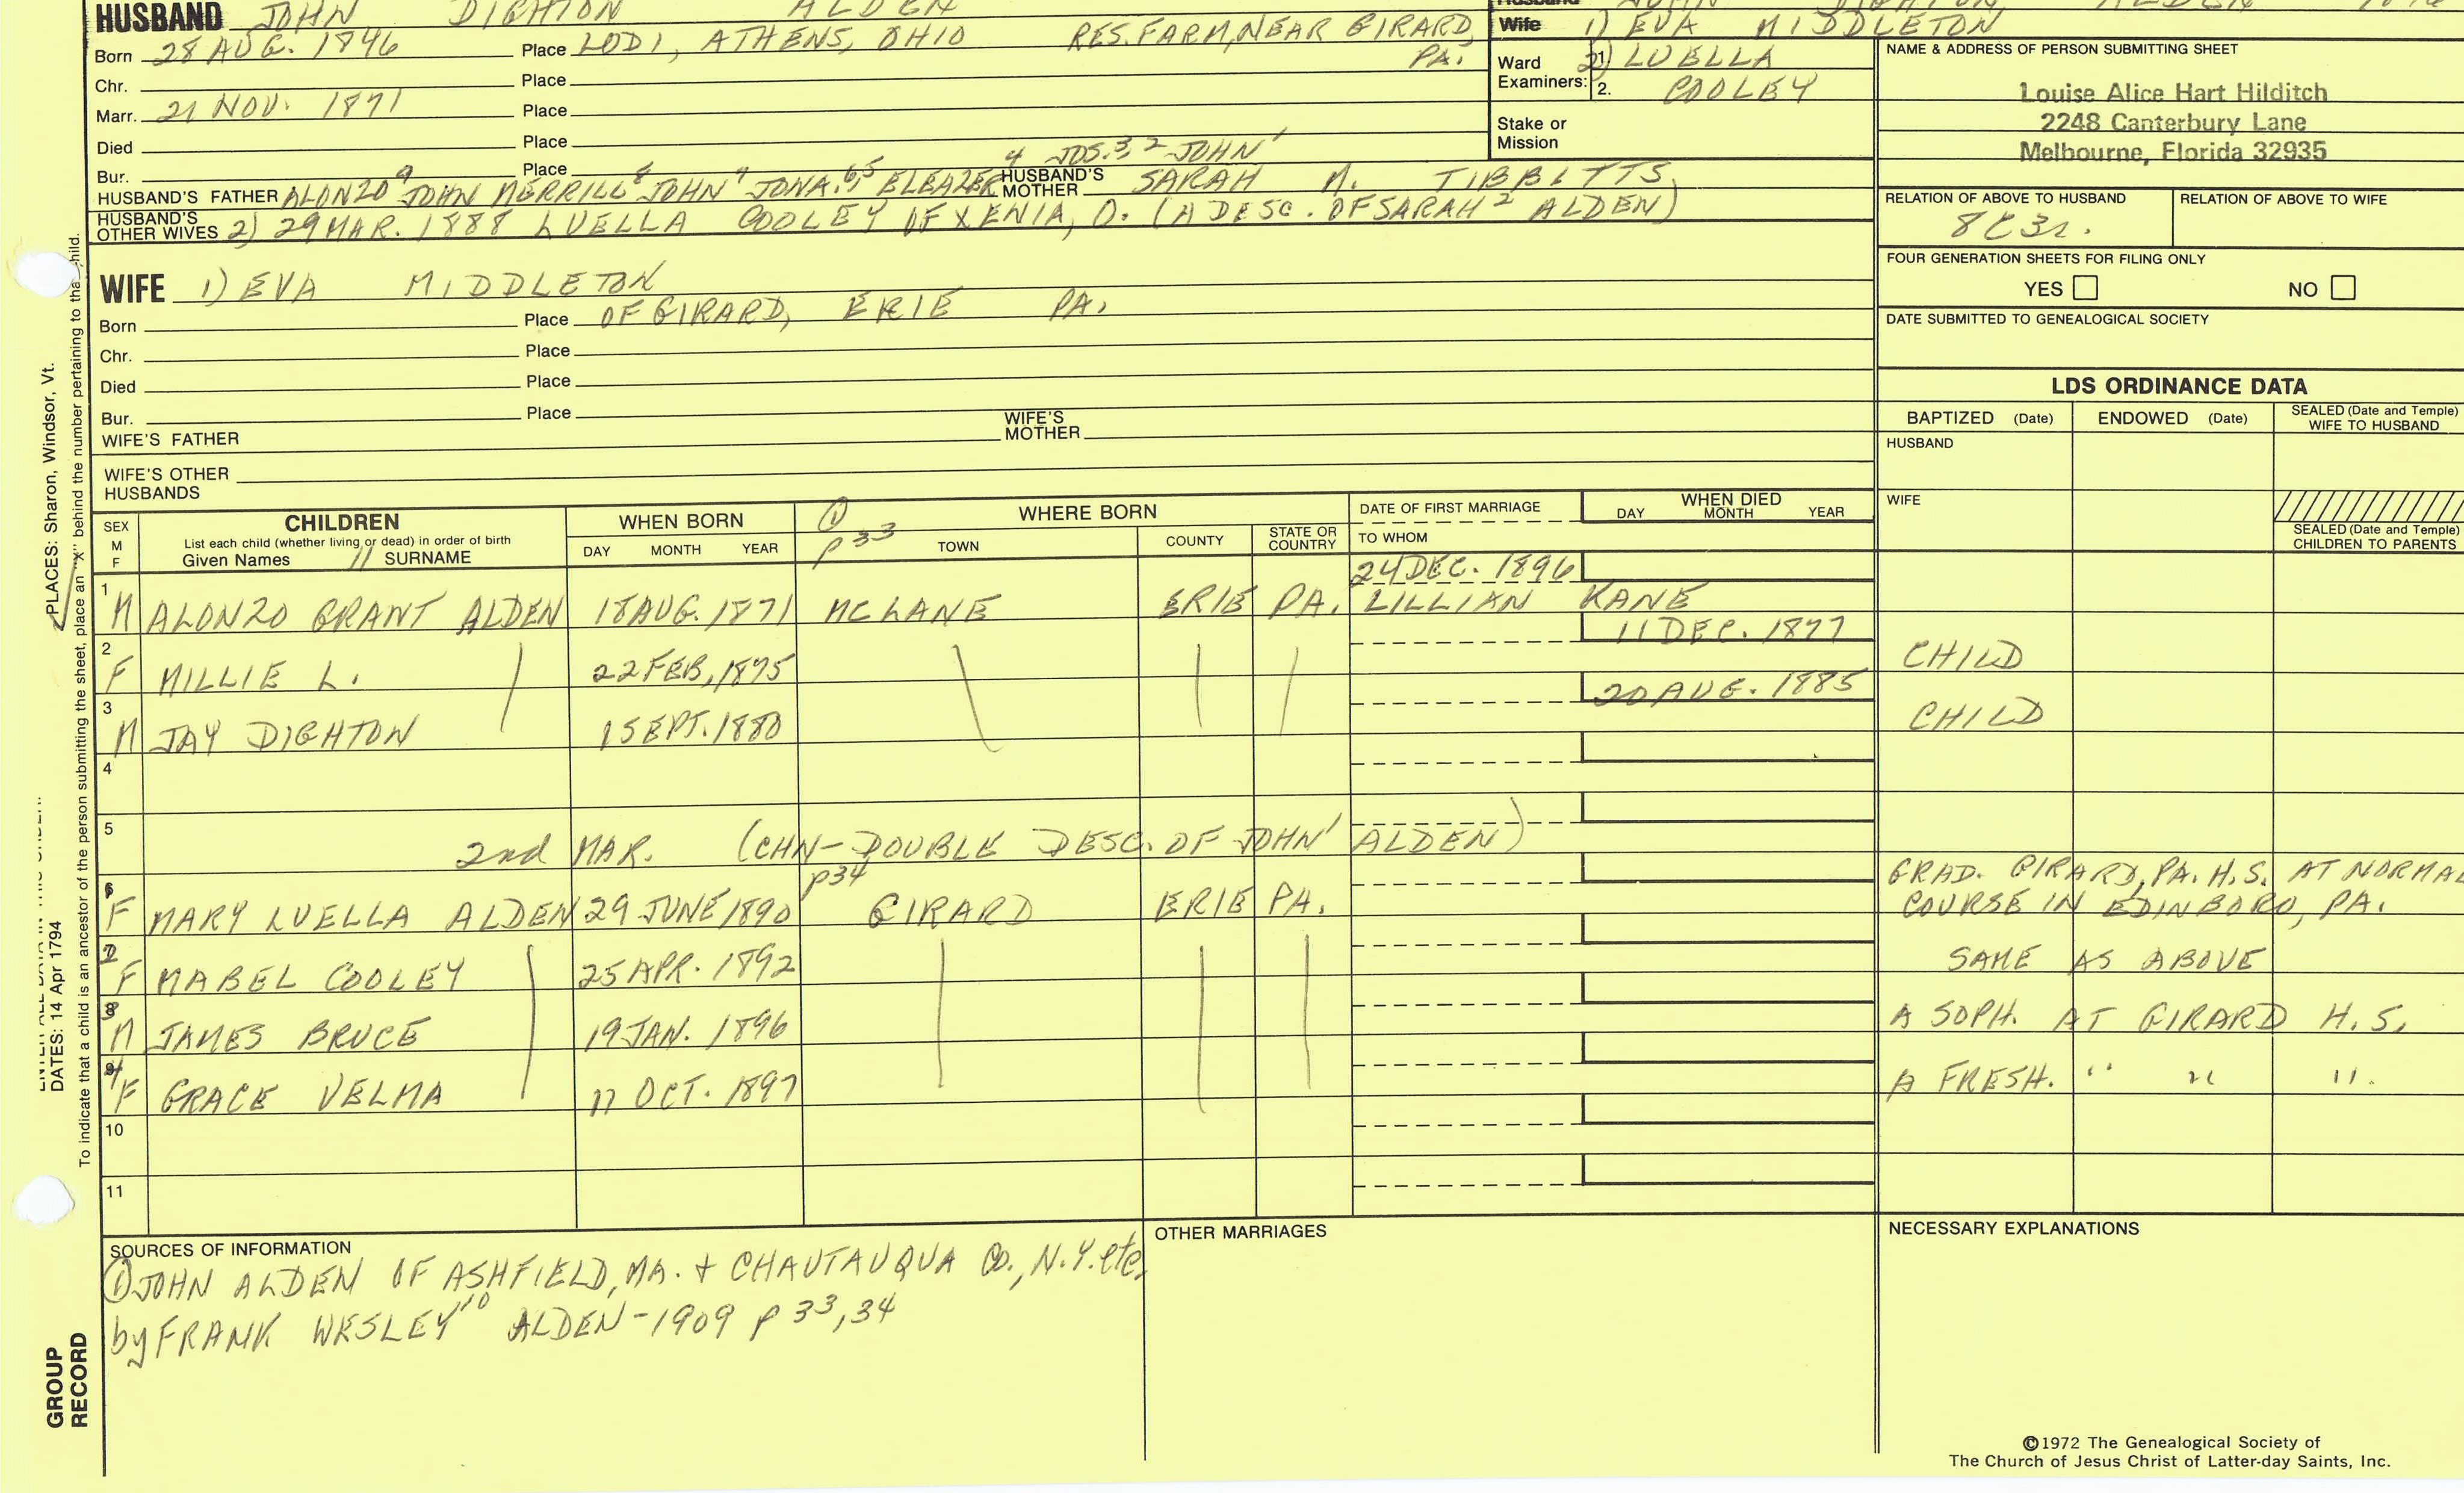 HUSBAND JOHN DIGHTON ALDEN
Born 28 AUG. 1846 Place LODI, ATHENS, OHIO RES. FARM, NEAR GIRARD, PA.
Chr. Place
Marr. 21 NOV. 1871 Place
Died Place
Bur. Place
HUSBAND'S FATHER ALONZO 9 JOHN MERRILL 8 JOHN 7 JONA. 6,5 ELEAZER 4 JOS. 3, 2 JOHN 1 HUSBAND'S MOTHER SARAH M. TIBBITTS
HUSBAND'S OTHER WIVES 2) 29 MAR. 1888 LUELLA COOLEY OF XENIA, O. (A DESC. OF SARAH 2 ALDEN)
WIFE 1) EVA MIDDLETON
Born Place OF GIRARD, ERIE PA.
Chr. Place
Died Place
Bur. Place
WIFE'S FATHER WIFE'S MOTHER
WIFE'S OTHER HUSBANDS
Husband JOHN DIGHTON ALDEN
Wife 1) EVA MIDDLETON
2) LUELLA COOLEY
Ward Examiners: 1. 2.
Stake or Mission
NAME & ADDRESS OF PERSON SUBMITTING SHEET
Louise Alice Hart Hilditch
2248 Canterbury Lane
Melbourne, Florida 32935
RELATION OF ABOVE TO HUSBAND RELATION OF ABOVE TO WIFE
8C3r.
FOUR GENERATION SHEETS FOR FILING ONLY
YES NO
DATE SUBMITTED TO GENEALOGICAL SOCIETY
LDS ORDINANCE DATA
BAPTIZED (Date) ENDOWED (Date) SEALED (Date and Temple) WIFE TO HUSBAND
HUSBAND
WIFE
SEALED (Date and Temple) CHILDREN TO PARENTS
SEX M F
CHILDREN
List each child (whether living or dead) in order of birth
Given Names 11 SURNAME
WHEN BORN
DAY MONTH YEAR
① p 33
WHERE BORN
TOWN COUNTY STATE OR COUNTRY
DATE OF FIRST MARRIAGE
TO WHOM
WHEN DIED
DAY MONTH YEAR
1 M ALONZO GRANT ALDEN 18 AUG. 1871 MCLANE ERIE PA. 24 DEC. 1896 LILLIAN KANE
2 F MILLIE L. 22 FEB, 1875 11 DEC. 1877 CHILD
3 M JAY DIGHTON 1 SEPT. 1880 20 AUG. 1885 CHILD
4
5 2nd MAR. (CHN-DOUBLE DESC. OF JOHN 1 ALDEN)
p34
6 F MARY LUELLA ALDEN 29 JUNE 1890 GIRARD ERIE PA. GRAD. GIRARD, PA. H.S. AT NORMAL COURSE IN EDINBORO, PA.
7 F MABEL COOLEY 25 APR. 1892 SAME AS ABOVE
8 M JAMES BRUCE 19 JAN. 1896 A SOPH. AT GIRARD H.S.
9 F GRACE VELMA 17 OCT. 1897 A FRESH. " " "
10
11
SOURCES OF INFORMATION
① JOHN ALDEN OF ASHFIELD, MA. + CHAUTAUQUA CO., N.Y. etc.
by FRANK WESLEY 10 ALDEN-1909 p 33,34
OTHER MARRIAGES
NECESSARY EXPLANATIONS
©1972 The Genealogical Society of
The Church of Jesus Christ of Latter-day Saints, Inc.
PLACES: Sharon, Windsor, Vt.
DATES: 14 Apr 1794
To indicate that a child is an ancestor of the person submitting the sheet, place an "x" behind the number pertaining to that child.
GROUP
RECORD